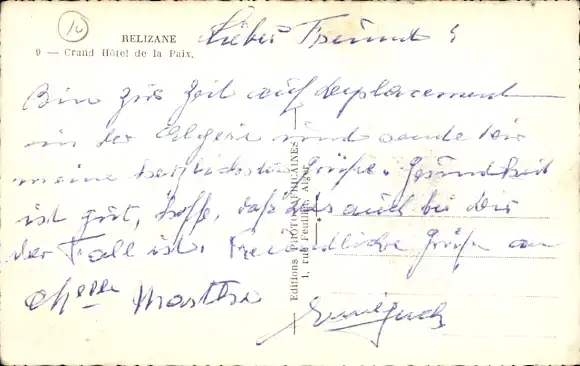 10
RELIZANE
9 — Grand Hôtel de la Paix.
Lieber Freund!
Bin zur Zeit auf deplacement
in der Algeri und sende Dir
meine herzlichsten Grüße. Gesundheit
ist gut, hoffe, daß das auch bei dir
der Fall ist. Freundliche Grüße an
Melle Martha
Editions PHOTO-AFRICAINES
1, rue Feuillet, Alger